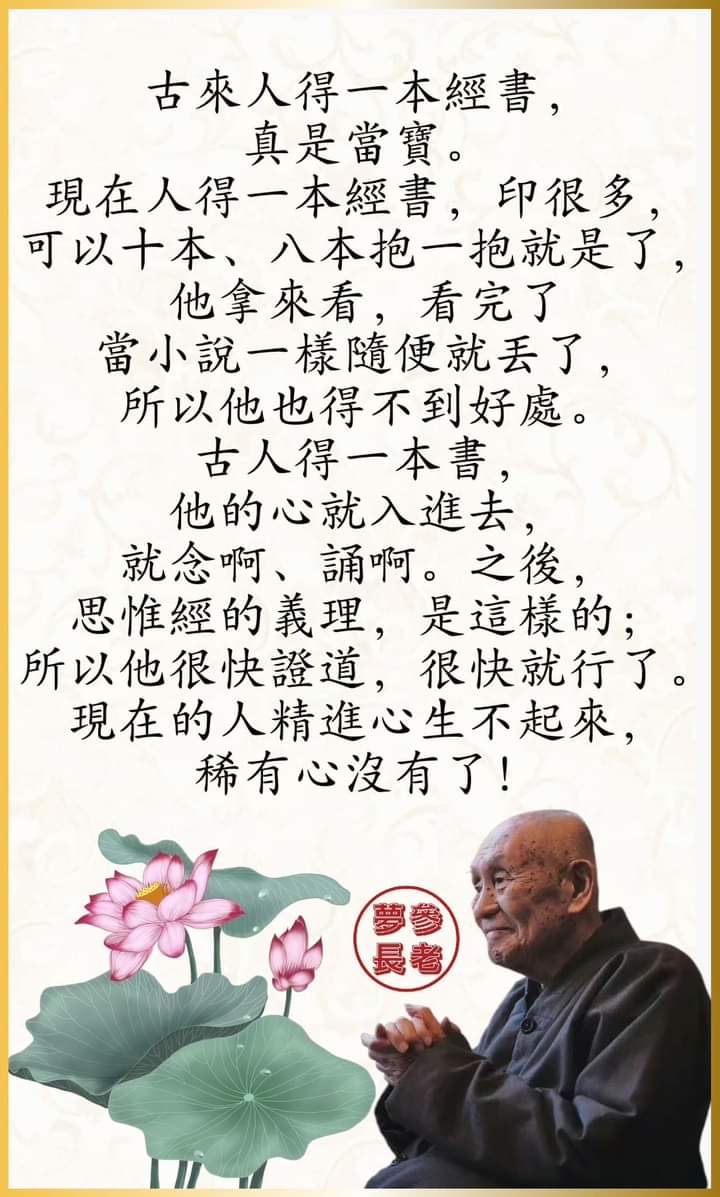 古來人得一本經書，
真是當寶。
現在人得一本經書，印很多，
可以十本、八本抱一抱就是了，
他拿來看，看完了
當小說一樣隨便就丟了，
所以他也得不到好處。
古人得一本書，
他的心就入進去，
就念啊、誦啊。之後，
思惟經的義理，是這樣的；
所以他很快證道，很快就行了。
現在的人精進心生不起來，
稀有心沒有了！
夢參
長老